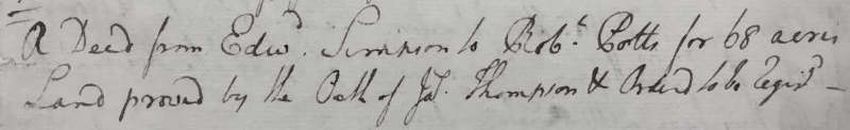 A Deed from Edwd. Simpson to Robt. Potts for 68 acres
Land proved by the Oath of Jas. Thompson & Ordered to be Registd —